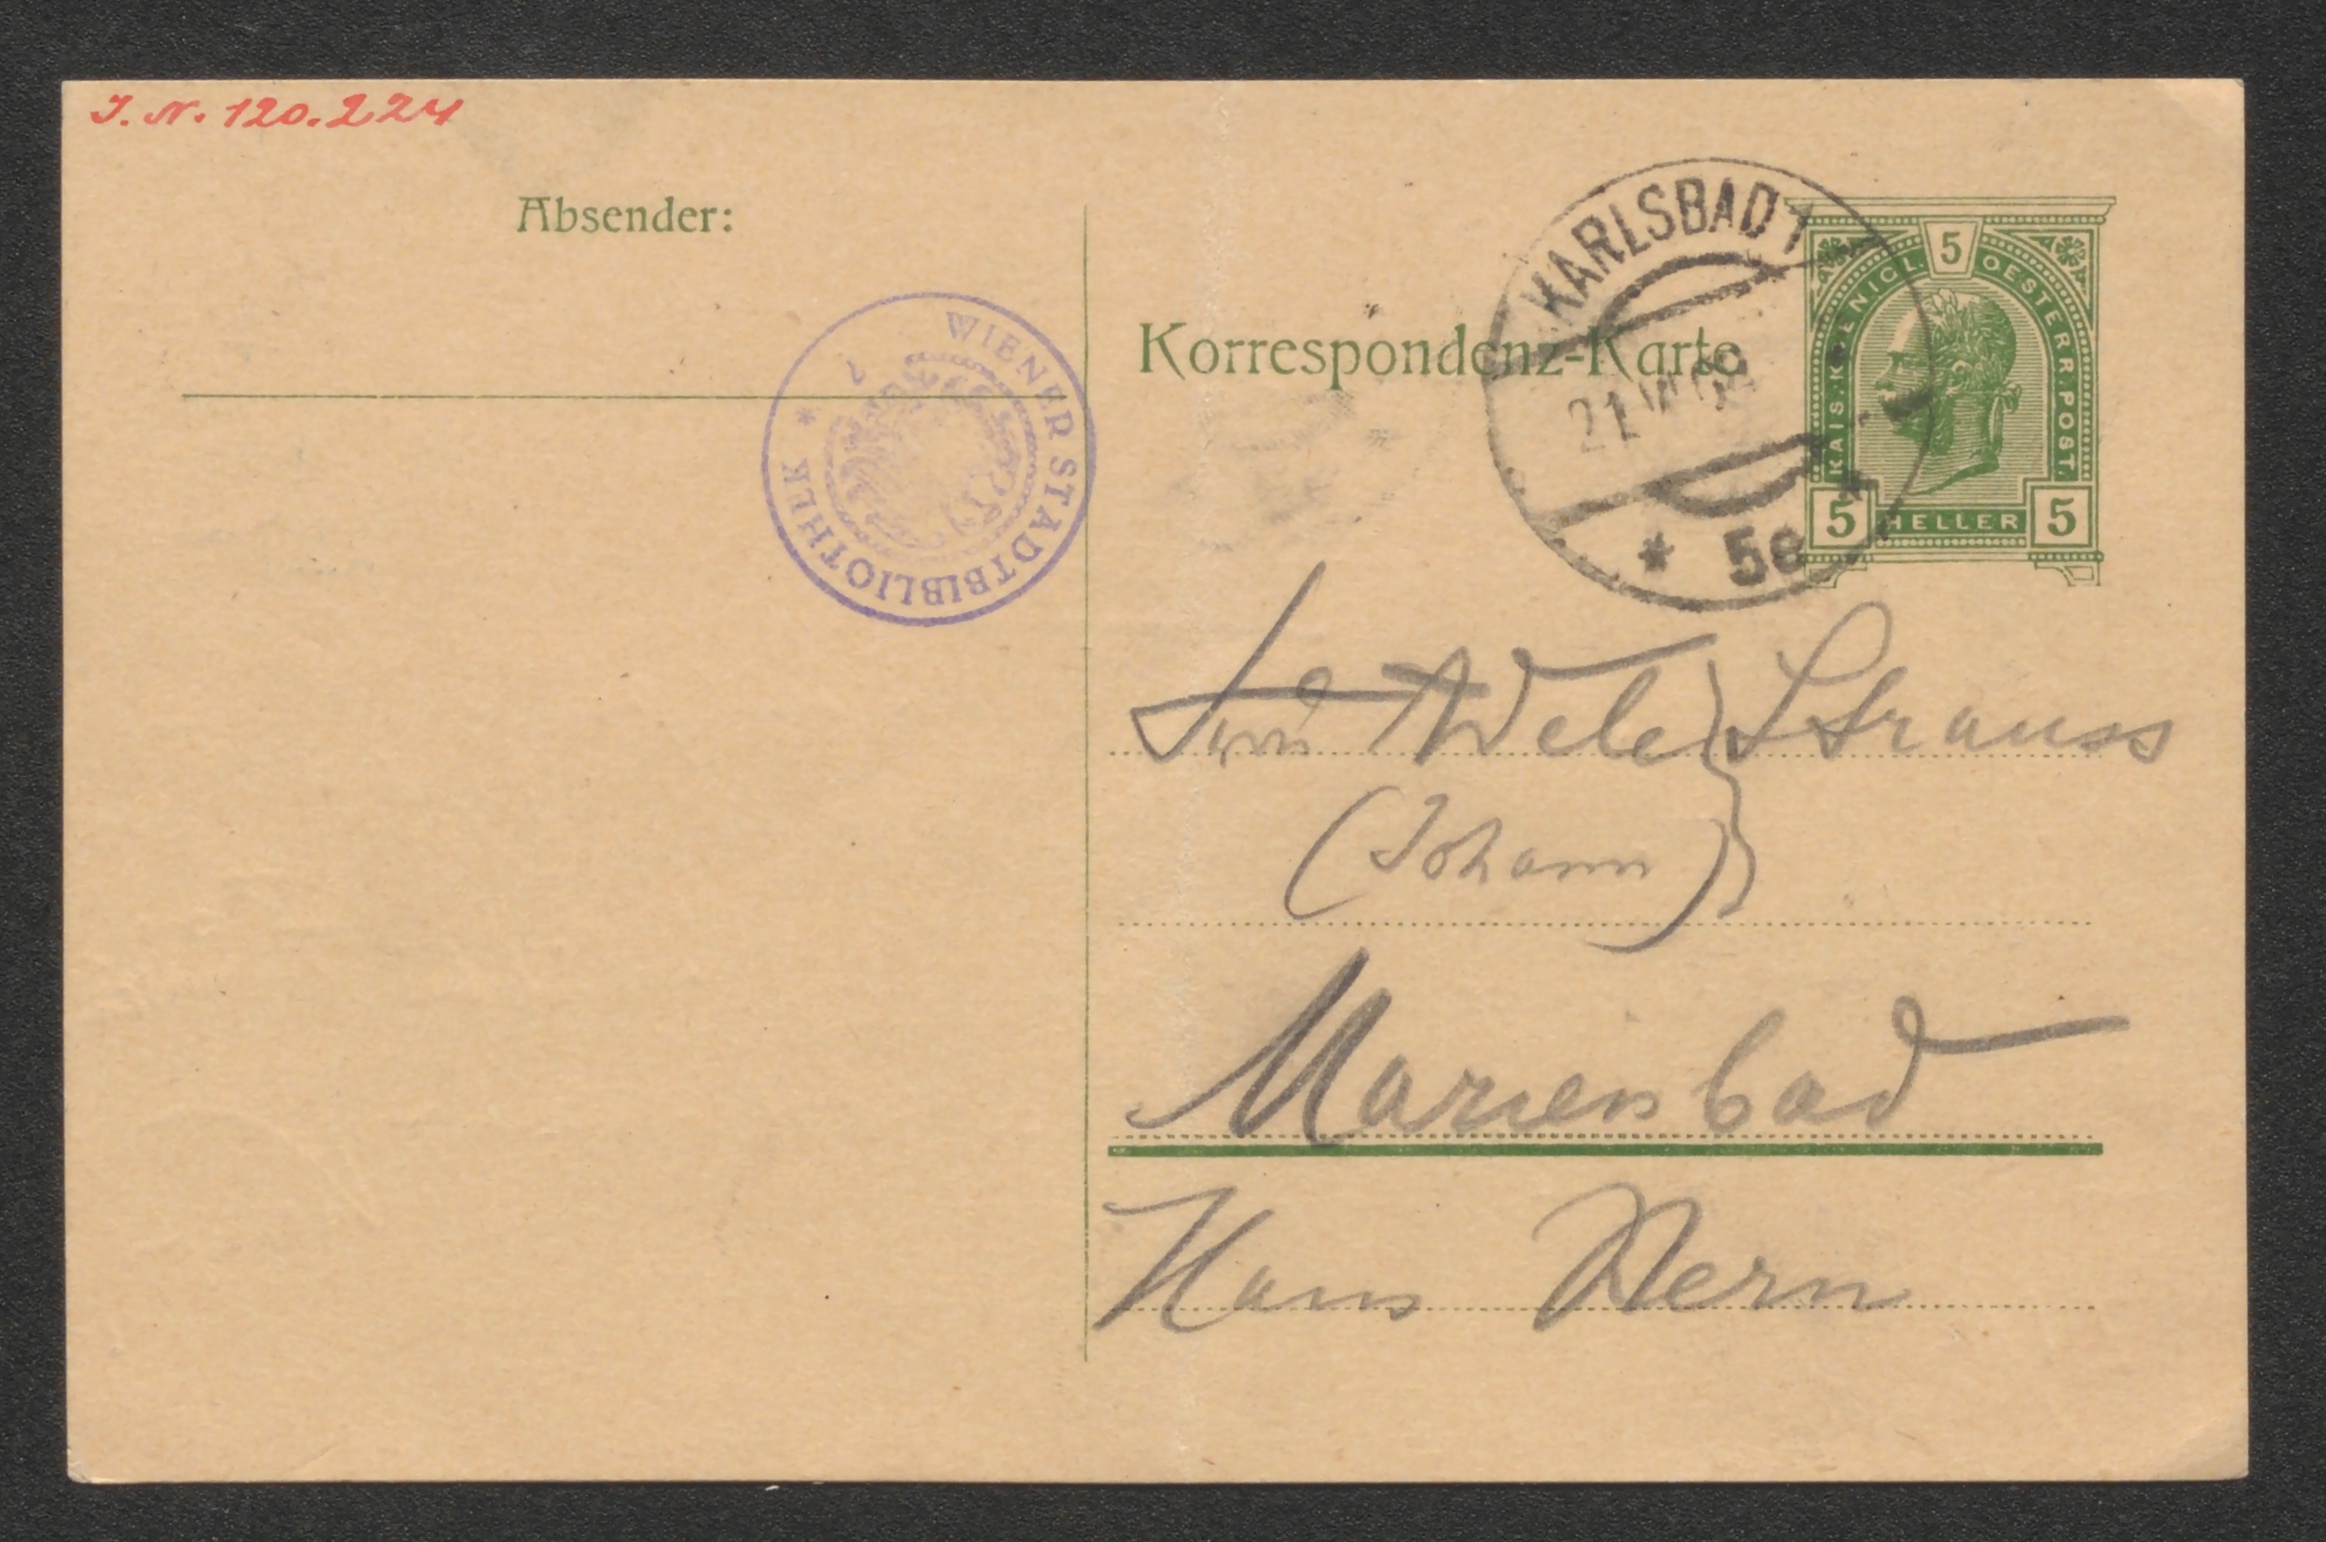 J. N. 120.224
Absender:
WIENER STADTBIBLIOTHEK
Korrespondenz-Karte
KARLSBAD 1
21
* 5e
KAIS. KOENIGL. 5 OESTERR. POST.
5 HELLER 5
Adele } Strauss
(Johann)
Marienbad
Hans